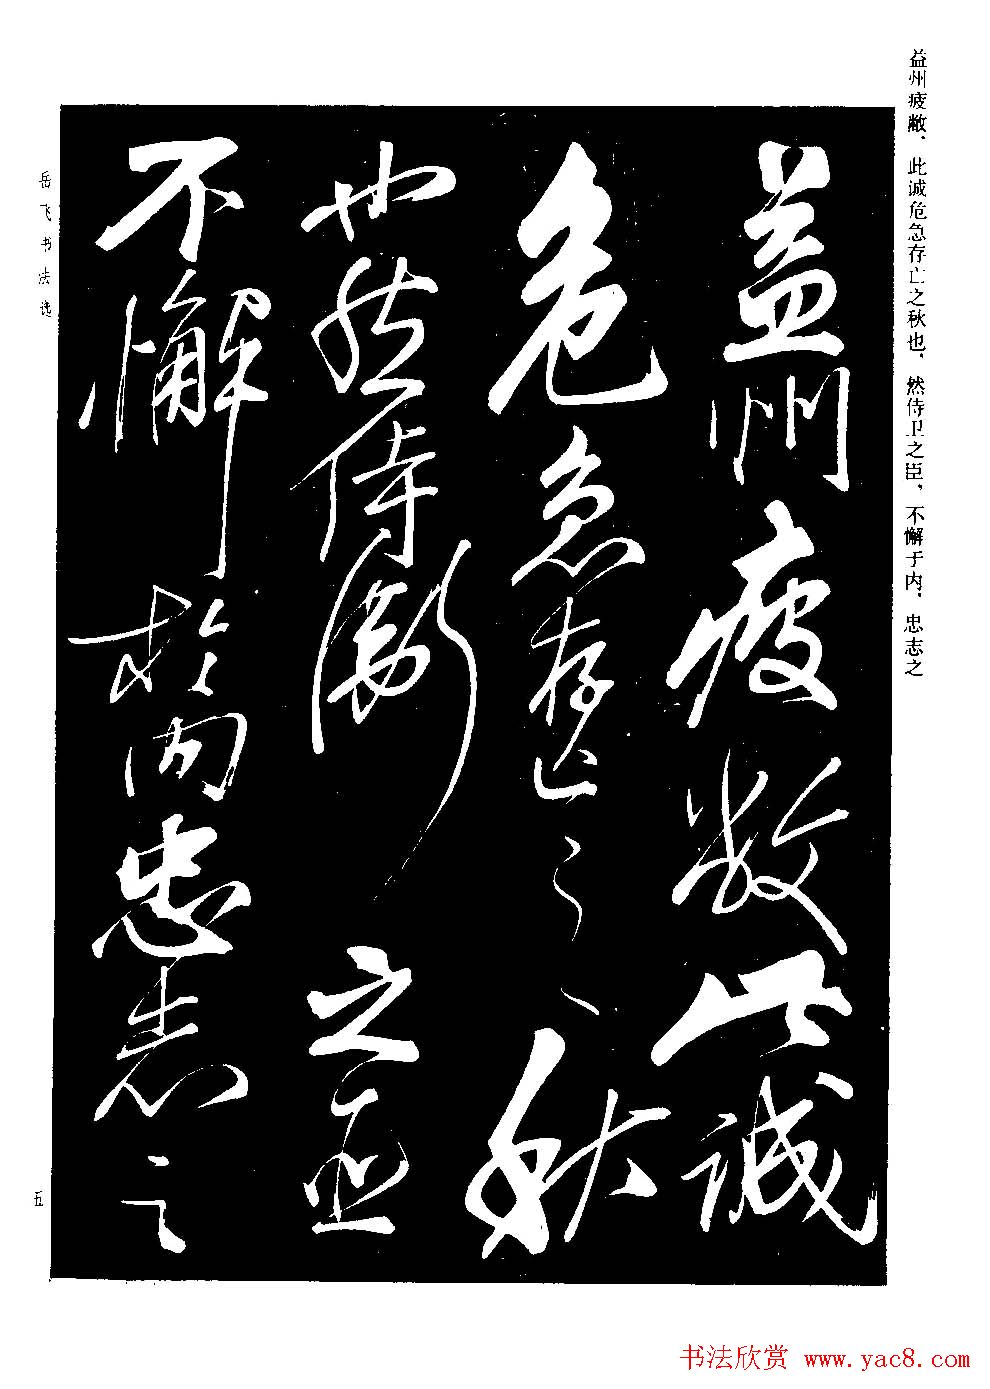 益州疲敝，此诚危急存亡之秋也，然侍卫之臣，不懈于内，忠志之
益州疲敝此誠
危急存亡之秋
也然侍衛之臣
不懈於内忠志之
岳飞书法选
五
书法欣赏 www.yac8.com